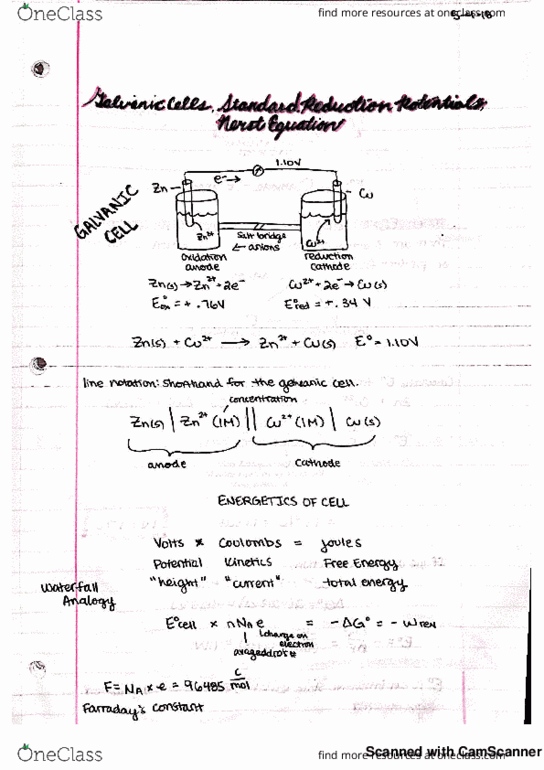 OneClass
find more resources at oneclass.com
5-4-18
Galvanic Cells, Standard Reduction Potentials,
Nerst Equation
GALVANIC
CELL
1.10V
e⁻ →
Zn
Cu
Zn²⁺
Salt bridge
Cu²⁺
← anions
oxidation
anode
reduction
cathode
Zn(s) → Zn²⁺ + 2e⁻
Cu²⁺ + 2e⁻ → Cu(s)
E°ox = + .76V
E°red = + .34 V
Zn(s) + Cu²⁺ → Zn²⁺ + Cu(s) E° = 1.10V
line notation: Shorthand for the galvanic cell.
concentration
Zn(s) | Zn²⁺ (1M) || Cu²⁺ (1M) | Cu(s)
anode
cathode
ENERGETICS OF CELL
Volts × Coulombs = joules
Potential Kinetics Free Energy
"height" "current" total energy
Waterfall
Analogy
E°cell × n NA e = -ΔG° = -Wrev
charge on
electron
F = NA × e = 96485 C/mol
Farraday's constant
OneClass
find more resources at oneclass.com
Scanned with CamScanner